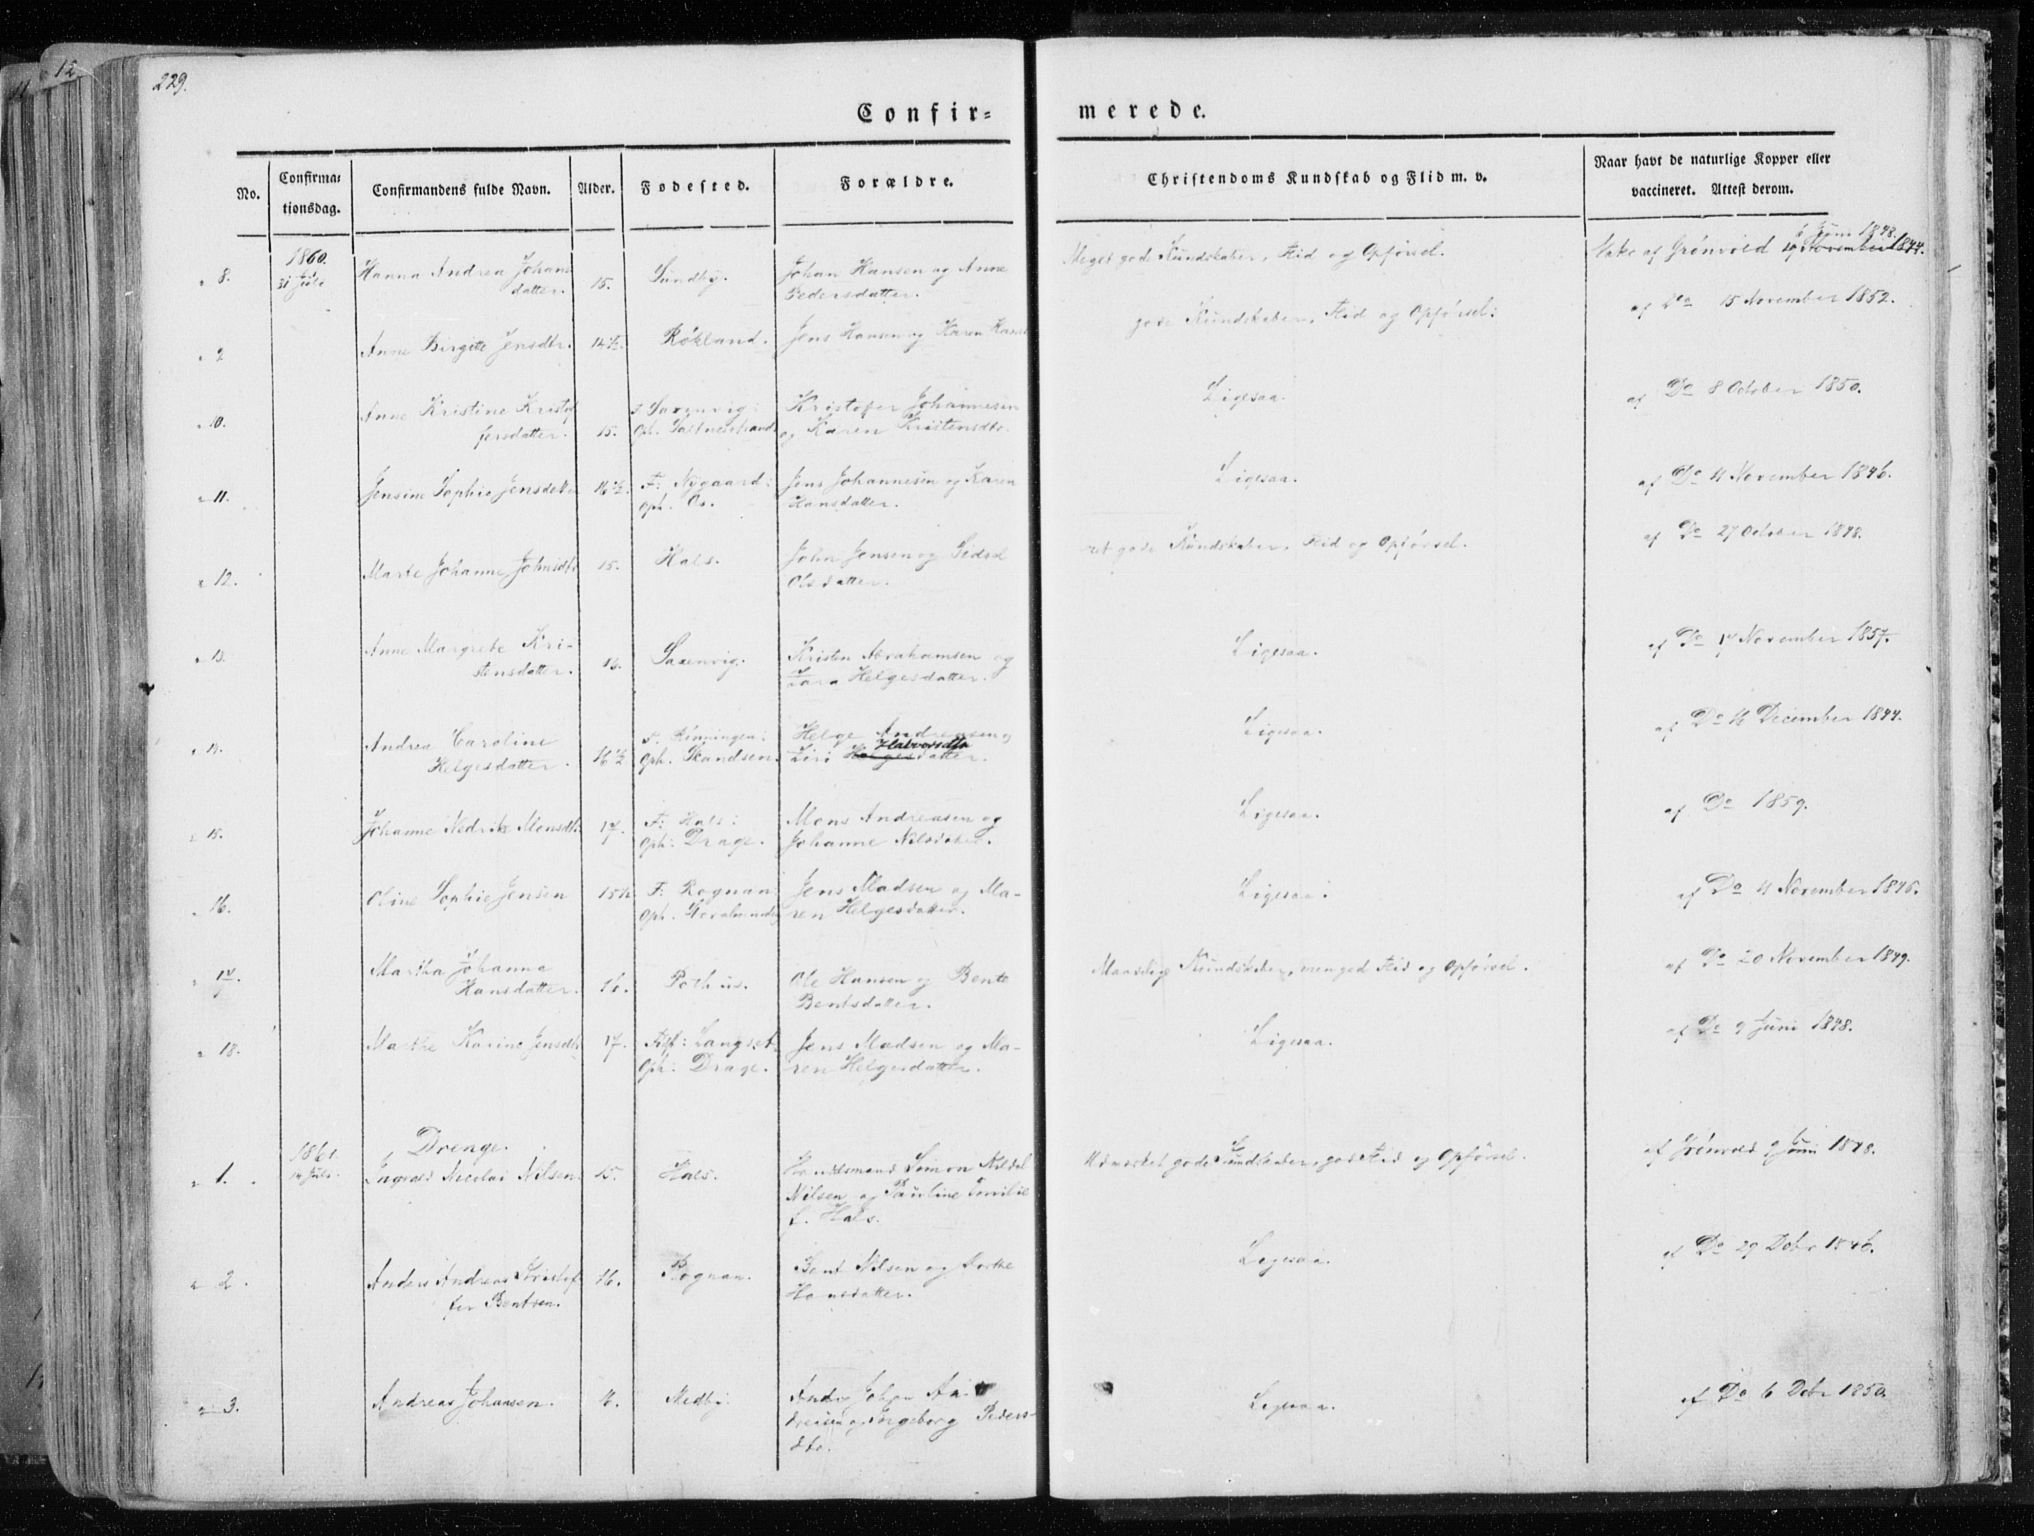 12
229.
Confir=
merede.
No.
Confirma=
tionsdag.
Confirmandens fulde Navn.
Alder.
Fødested.
Forældre.
Christendoms Kundskab og Flid m. v.
Naar havt de naturlige Kopper eller
vaccineret. Attest derom.
1860.
31 Juli
" 8. Hanna Andrea Johans
datter. 15. Sundby. Johan Hansen og Anne
Pedersdatter. Meget god Kundskaber, Flid og Opførsel. Vakc. af Grønvold 17 November 1844.
6 Juni 1848.
" 9 Anne Birgitte Jensdtr. 14½. Røkland. Jens Hansen og Karen
gode Kundskaber, Flid og Opførsel: af Do 15 November 1852.
" 10. Anne Kristine Kristof
fersdatter. 15. Saxenvig:
Oph. Kristofer Johannesen
og Karen Kristensdtr. Ligesaa. af Do 8 October 1850.
" 11. Jensine Sophie Jensdatter 16½. F: Nygaard:
Oph. Os. Jens Johannesen og Karen
Hansdatter. Ligesaa. af Do 4 November 1846.
" 12. Marte Johanne Johnsdtr 15. Hals. John Jensen og Sidsel
Olsdatter. gode Kundskaber, Flid og Opførsel. af Do 27 October 1848.
" 13. Anne Margrete Kri-
stensdatter. 16. Saxenvig. Kristen Abrahamsen og
Zara Helgesdatter. Ligesaa. af Do 17 November 1857.
" 14. Andrea Caroline
Helgesdatter. 16½ F. Rinningen:
Oph. Skandsen. Helge Andreasen og
Halvorsdtr
Ziri Helgesdatter. Ligesaa. af Do 16 December 1844.
" 15. Johanne Nedrike Monsdtr. 17. F: Hals:
Oph: Drage. Mons Andreasen og
Johanne Nilsdatter. Ligesaa. af Do 1859.
" 16. Oline Sophie Jensen 15½ F: Rognan
Oph. Jens Madsen og Ma-
ren Helgesdatter. Ligesaa: af Do 4 November 1846.
" 17. Martha Johanna
Hansdatter. 16. Pothus. Ole Hansen og Bente
Bentsdatter. Maadelige Kundskaber, megen Flid og Opførsel. af Do 20 November 1849.
" 18. Marthe Karine Jensdtr 17. F: Langset.
Oph: Drage. Jens Madsen og Ma-
ren Helgesdatter. Ligesaa. af Do 9 Juni 1848.
Drenge.
1861.
14 Juli.
" 1. Ingvald Nicolai Nilsen. 15. Hals. Handelsmand Simon
Nilsen og Pauline Emilie
f. Hals. Udmærket gode Kundskaber, god Flid og Opførsel. af Grønvold 9 Juni 1848.
" 2. Anders Andreas Kristof
fer Bentsen. 16. Rognan. Bent Nilsen og
Hansdatter. Ligesaa. af Do 29 Debr 1846.
" 3. Andreas Johansen. 16. Nedby. Anders Johan An
dreasen og Ingeborg Peders-
dtr. Ligesaa. af Do 6 Debr 1850.